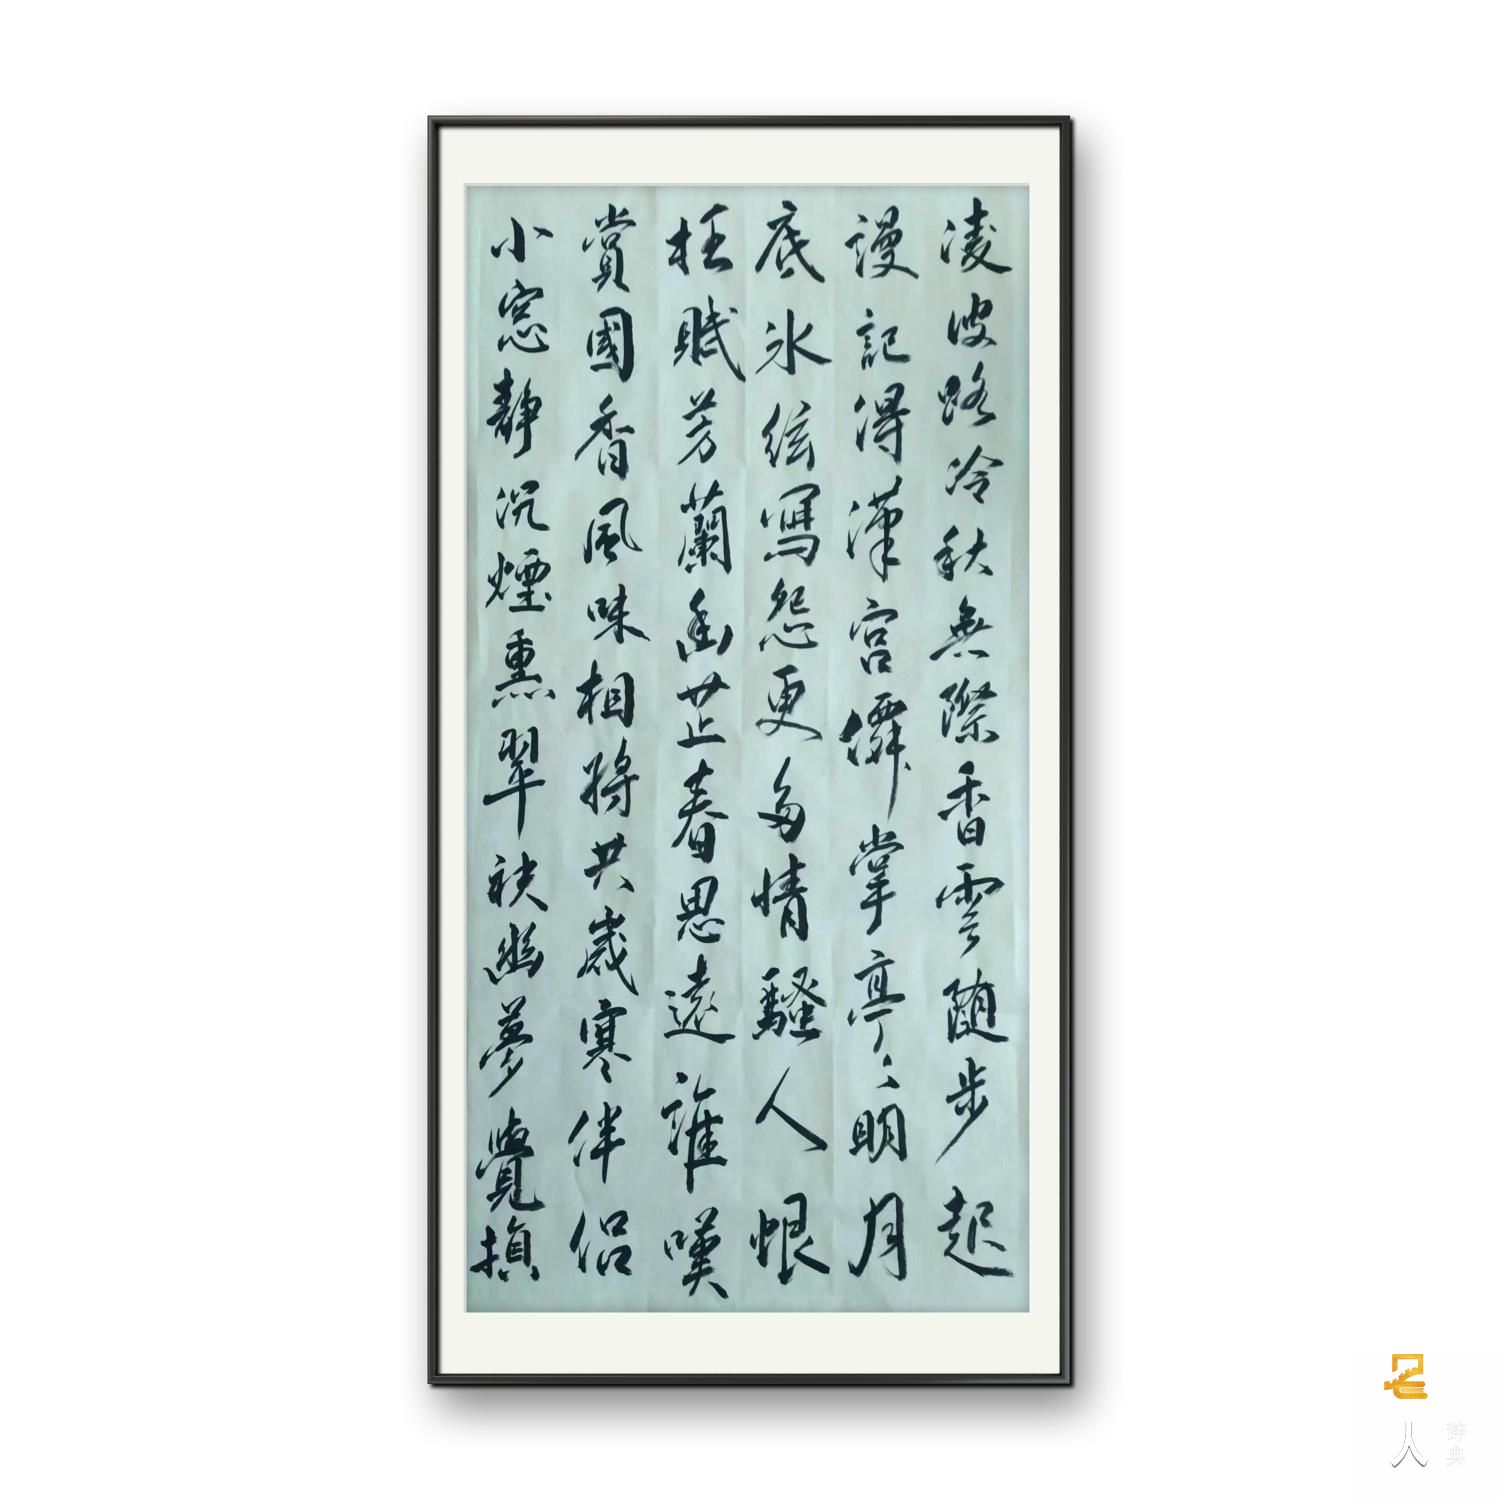 凌波路冷秋無際香雲随步起
謾記得漢宮僊掌亭〻明月
底氷絃寫怨更多情騷人恨
枉賦芳蘭幽芷春思遠誰嘆
賞國香風味相將共歲寒伴侶
小窓靜沉煙熏翠袂幽夢覺損
人
辞典